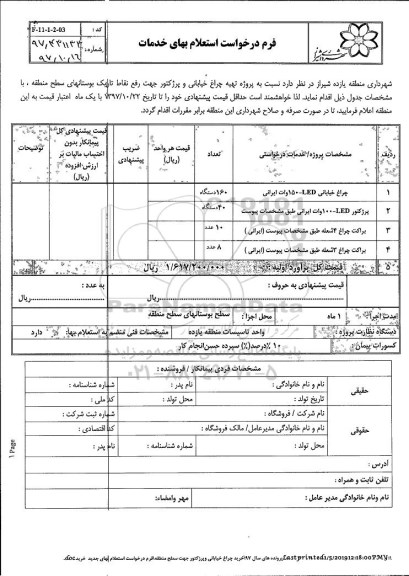 فرم درخواست استعلام بهای خدمات
کد : F-11-1-2-03
شماره:
۹۷/۱۰/۱۶
شهرداری منطقه یازده شیراز در نظر دارد نسبت به پروژه تهیه چراغ خیابانی و پرژکتور جهت رفع نقاط تاریک بوستانهای سطح منطقه ، با
مشخصات جدول ذیل اقدام نماید. لذا خواهشمند است حداقل قیمت پیشنهادی خود را تا تاریخ ۱۳۹۷/۱۰/۲۲ با یک ماه اعتبار قیمت به این
منطقه اعلام فرمایید، تا در صورت صرفه و صلاح شهرداری این منطقه برابر مقررات اقدام گردد.
ردیف مشخصات پروژه/خدمات درخواستی تعداد قیمت هر واحد (ریال) ضریب پیشنهادی قیمت پیشنهادی کل پیمانکار بدون احتساب مالیات بر ارزش افزوده (ریال) توضیحات
۱ چراغ خیابانی LED-۱۵۰وات ایرانی ۱۶۰دستگاه
۲ پرژکتور LED-۱۰۰وات ایرانی طبق مشخصات پیوست ۴۰دستگاه
۳ براکت چراغ ۲شعله طبق مشخصات پیوست (ایرانی) ۱۰ عدد
۴ براکت چراغ ۳شعله طبق مشخصات پیوست (ایرانی) ۸ عدد
۵ قیمت کل برآورد اولیه : ۱/۶۱۷/۲۰۰/۰۰۰ ریال
قیمت پیشنهادی به حروف : ریال به عدد : ریال
مدت اجرا: ۱ ماه محل اجرا : سطح بوستانهای سطح منطقه
دستگاه نظارت پروژه : واحد تاسیسات منطقه یازده مشخصات فنی منضم به استعلام بها: دارد
کسورات پیمان : ۱۰ درصد(%) سپرده حسن‌انجام کار
مشخصات فردی پیمانکار / فروشنده :
حقیقی نام و نام خانوادگی : نام پدر : شماره شناسنامه :
تاریخ تولد : محل تولد : کد ملی :
حقوقی نام شرکت / فروشگاه : شماره ثبت شرکت :
نام و نام خانوادگی مدیرعامل/ مالک فروشگاه : کد اقتصادی :
محل تولد : شماره شناسنامه : نام پدر :
آدرس :
تلفن ثابت و همراه :
نام ونام خانوادگی مدیر عامل : مهر وامضاء:
1 Page